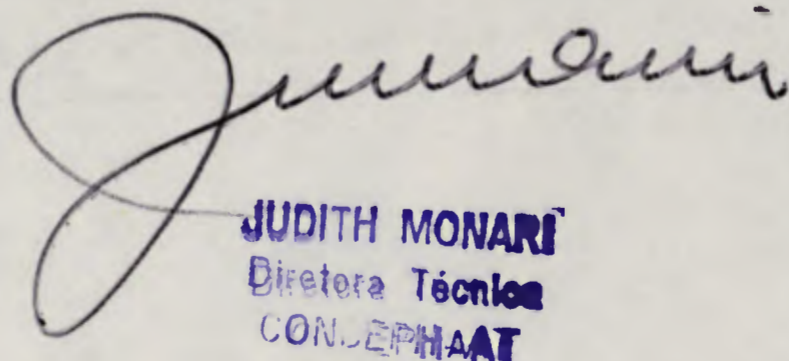 JUDITH MONARI
Diretora Técnica
CONDEPHAAT